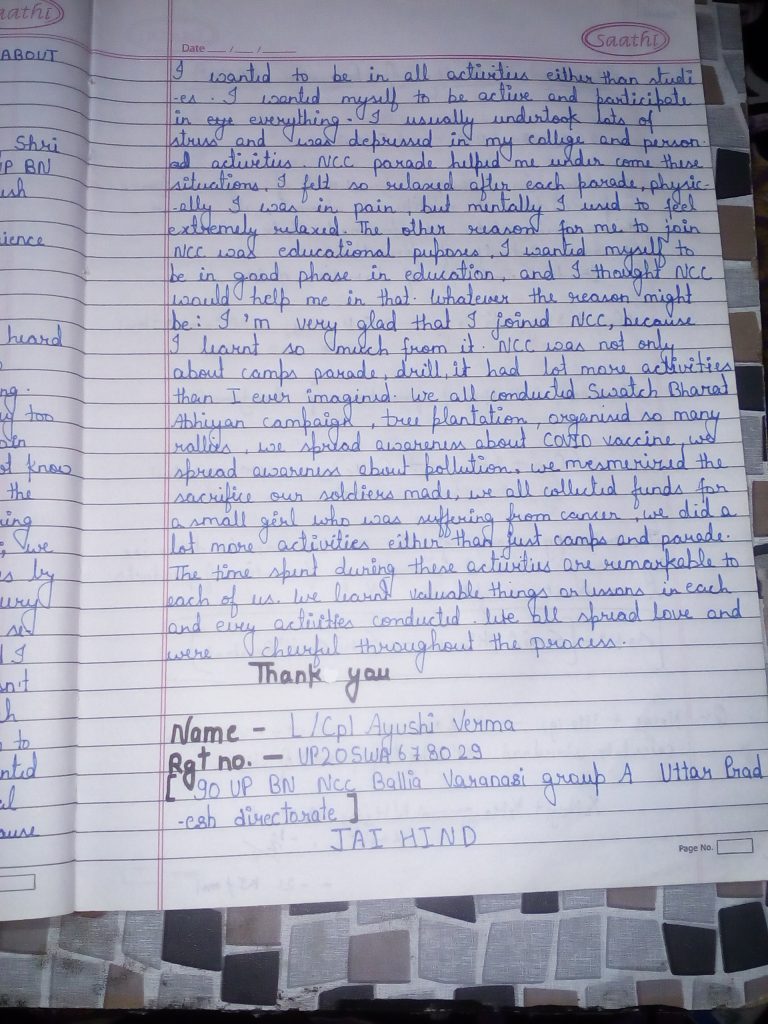 aathi
ABOUT
Shri
UP BN
ush
ience
heard
ng.
too
not know
the
ing
we
by
I
to
ause
Date __/__/____
Saathi
I wanted to be in all activities either than studi
-es. I wanted myself to be active and participate
in eye everything. I usually undertook lots of
stress and was depressed in my college and person-
al activities. NCC parade helped me under come these
situations. I felt so relaxed after each parade, physic-
-ally I was in pain, but mentally I used to feel
extremely relaxed. The other reason for me to join
NCC was educational puposes, I wanted myself to
be in good phase in education, and I thought NCC
would help me in that. Whatever the reason might
be: I'm very glad that I joined NCC, because
I learnt so much from it. NCC was not only
about camps parade, drill, it had lot more activities
than I ever imagined. We all conducted Swatch Bharat
Abhiyan campaign, tree plantation, organised so many
rallies, we spread awareness about COVID vaccine, we
spread awareness about pollution. we mesmerized the
sacrifice our soldiers made, we all collected funds for
a small girl who was suffering from cancer, we did a
lot more activities either than just camps and parade.
The time spent during these activities are remarkable to
each of us. We learnt valuable things or lessons in each
and every activities conducted. We all spread love and
were cheerful throughout the process.
Thank you
Name - L/Cpl Ayushi Verma
Rgt no. - UP20SWA678029
[ 90 UP BN NCC Ballia Varanasi group A Uttar Prad
-esh directorate ]
JAI HIND
Page No.